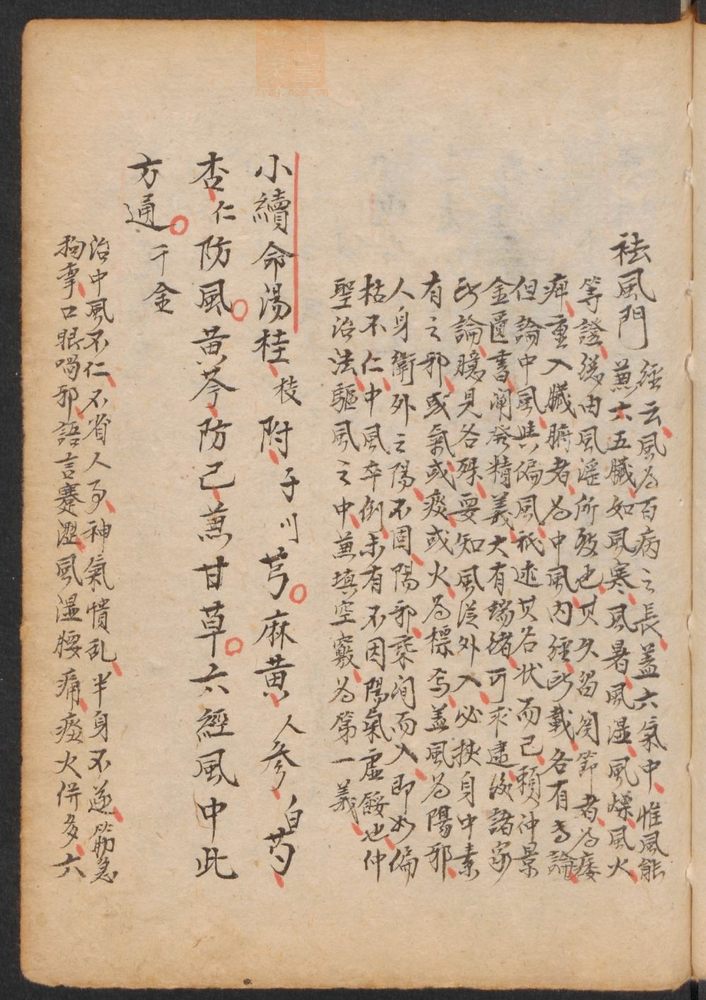 祛風門　經云風為百病之長蓋六氣中惟風能
兼六五臟如風寒風暑風湿風燥風火
等證緣由風淫所致也其久留関節者為痿
痺重入臟腑者為中風内經所載各有專論
但論中風與偏風祇述其名状而已頼仲景
金匱書闡發精義大有端緒可求逮後諸家
所論臆見各殊要知風從外入必挾身中素
有之邪或氣或痰或火為標焉蓋風為陽邪
人身衛外之陽不固陽邪乘間而入即如偏
枯不仁中風卒倒未有不因陽氣虛餒也仲
聖治法驅風之中兼填空竅為第一義
小續命湯桂枝附子川芎麻黄人參白芍
杏仁防風黄芩防己兼甘草六經風中此
方通千金
治中風不仁不省人事神氣憒乱半身不遂筋急
拘攣口眼喎邪語言蹇澀風湿腰痛痰火併多六